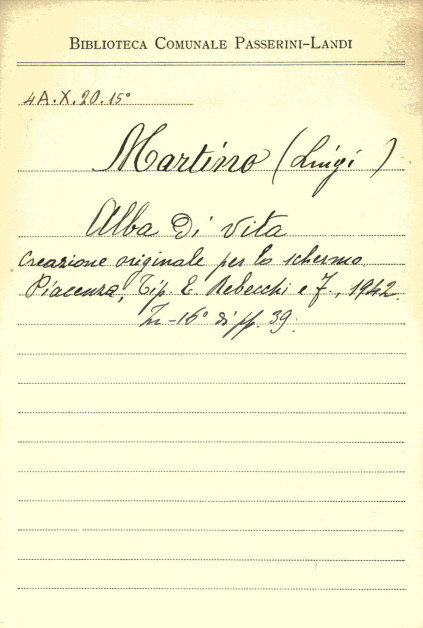 BIBLIOTECA COMUNALE PASSERINI-LANDI
4A.X.20.15°
Martino (Luigi)
Alba di vita
Creazione originale per lo schermo
Piacenza, Tip. E. Rebecchi e F., 1942.
In-16° di pp. 39.